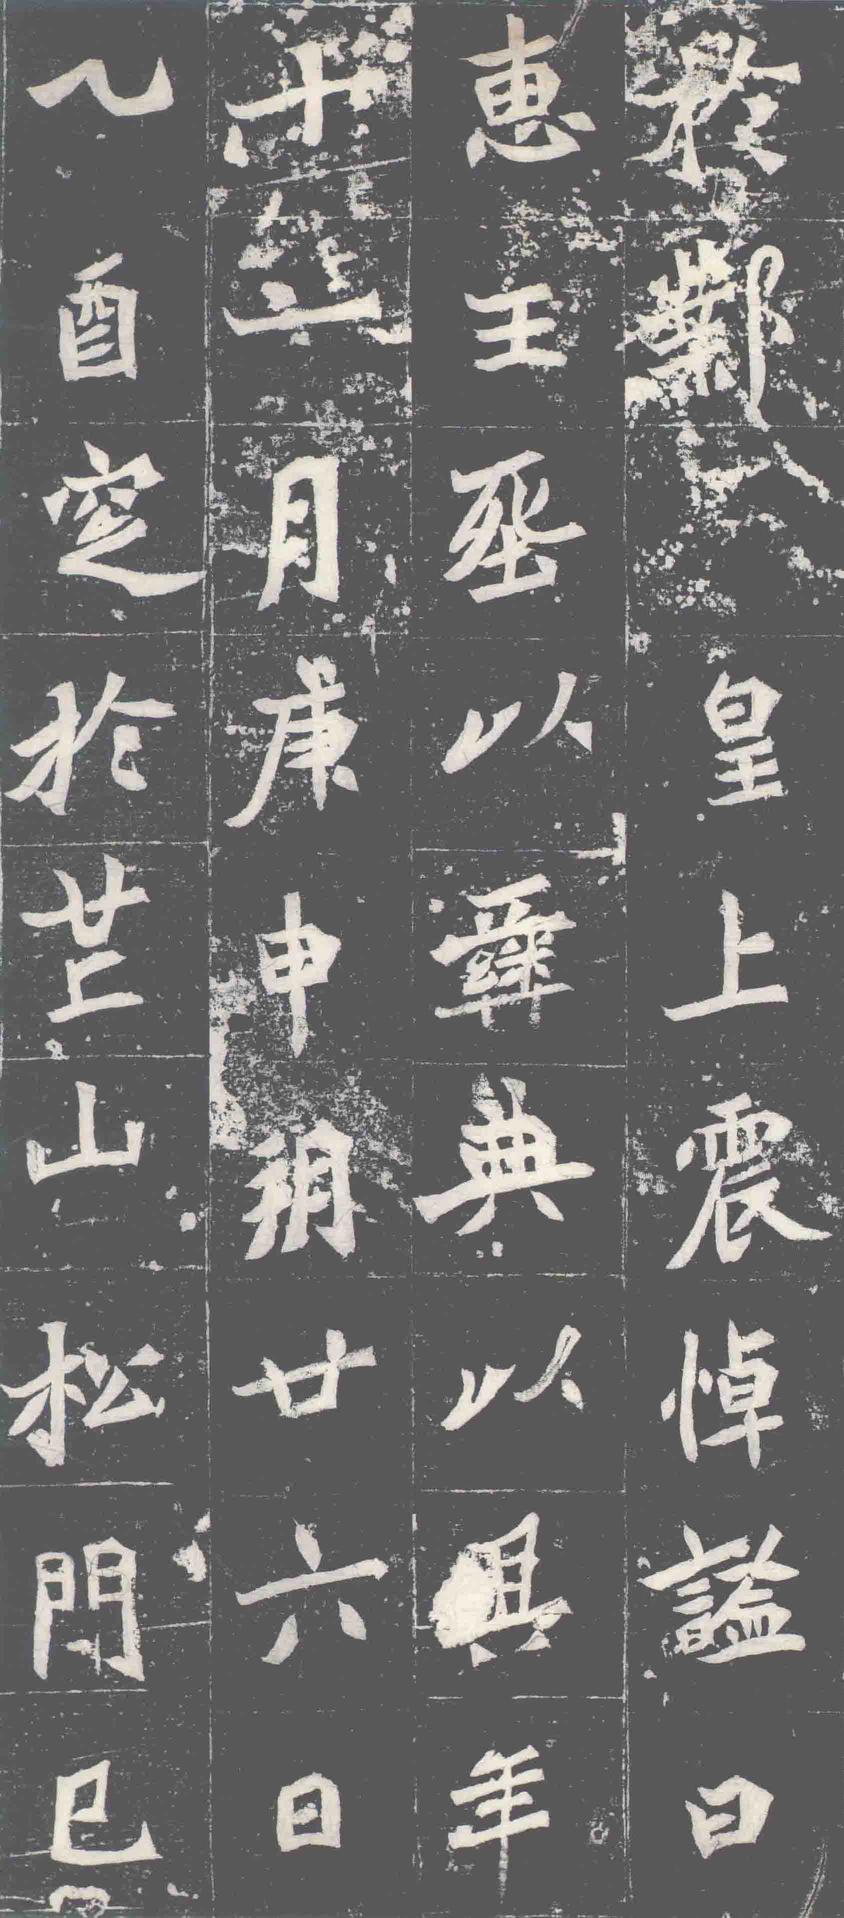 於鄴皇上震悼謚曰
惠王葬以彝典以其年
十一月庚申朔廿六日
乙酉窆於芒山松門已